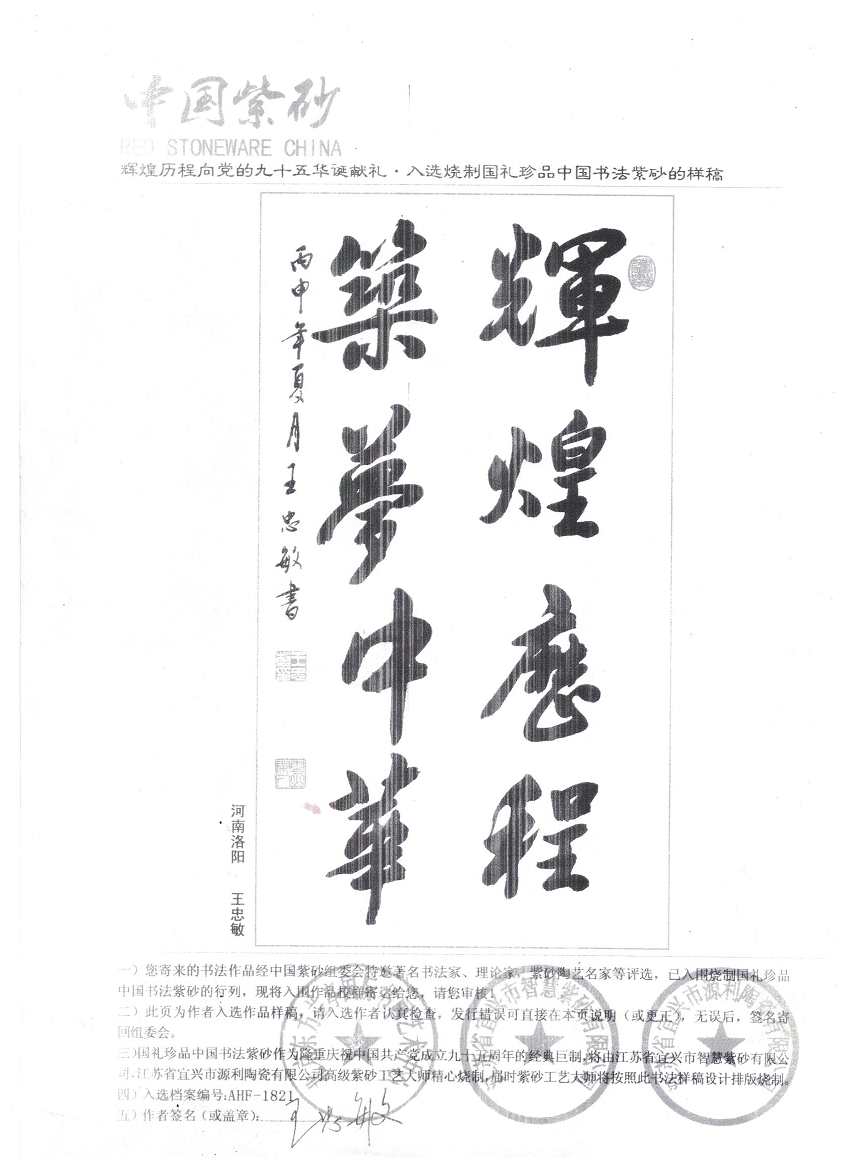 中国紫砂
RED STONEWARE CHINA
辉煌历程向党的九十五华诞献礼·入选烧制国礼珍品中国书法紫砂的样稿
輝煌歷程
築夢中華
丙申年夏月王忠敏書
河南洛阳 王忠敏
一）您寄来的书法作品经中国紫砂组委会特邀著名书法家、理论家、紫砂陶艺名家等评选，已入围烧制国礼珍品
中国书法紫砂的行列，现将入围作品校稿寄达给您，请您审核！
二）此页为作者入选作品样稿，请入选作者认真检查，发行错误可直接在本页说明（或更正），无误后，签名寄
回组委会。
三)国礼珍品中国书法紫砂作为隆重庆祝中国共产党成立九十五周年的经典巨制,将由江苏省宜兴市智慧紫砂有限公
司,江苏省宜兴市源利陶瓷有限公司高级紫砂工艺大师精心烧制,届时紫砂工艺大师将按照此书法样稿设计排版烧制。
四）入选档案编号:AHF-1821
五）作者签名（或盖章）: 王忠敏